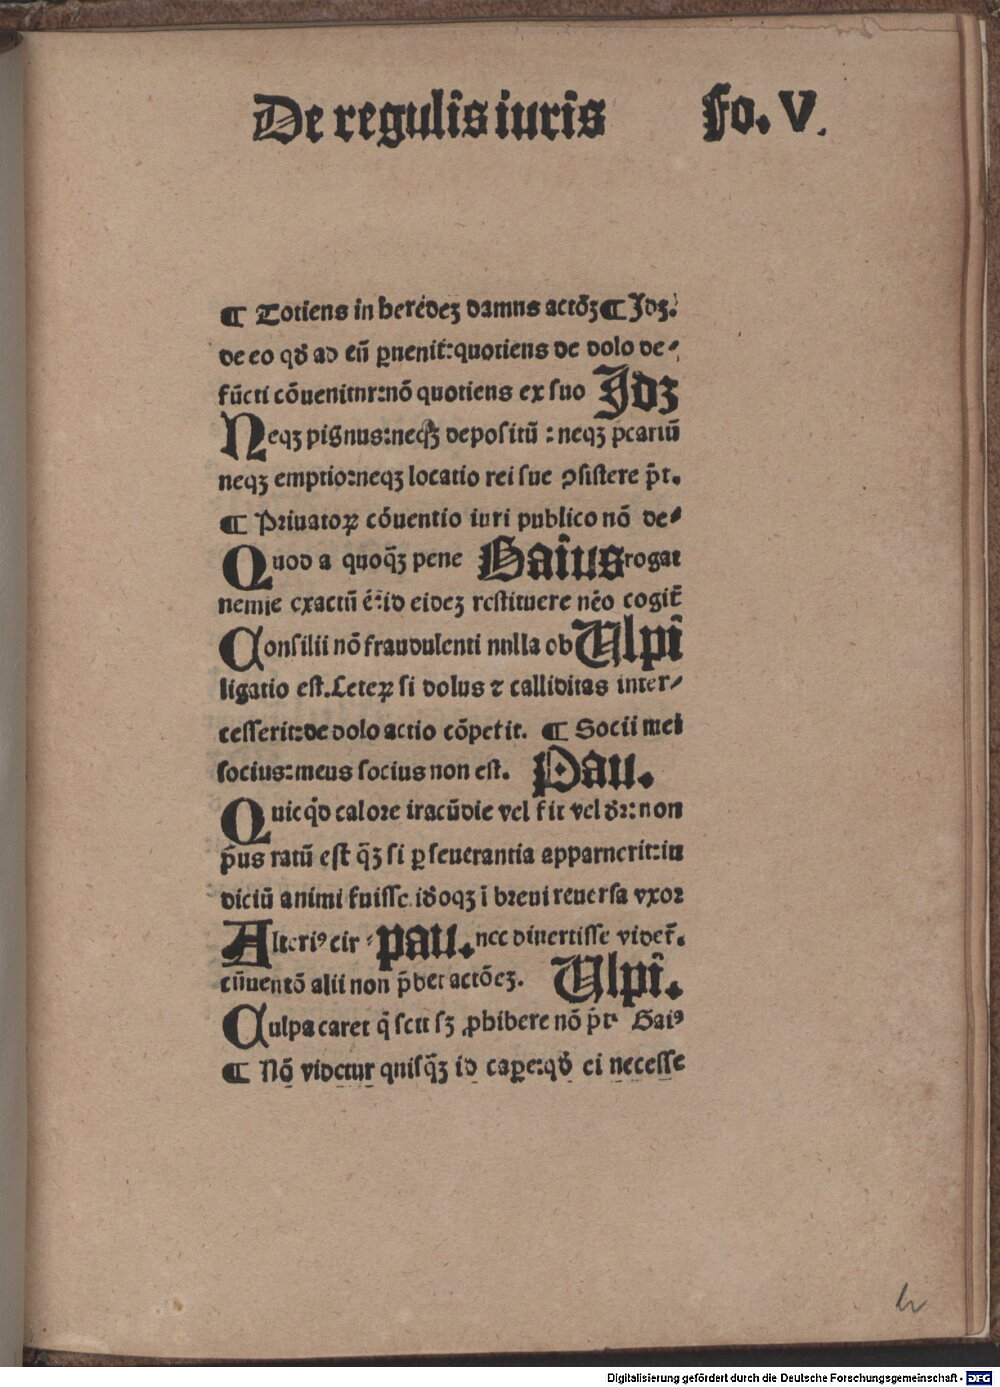 De regul̃is iur̃is Fo. V.
¶ Totiens in heredeꝫ damns actõꝫ ¶ Jdꝫ.
de eo qđ ad eũ ꝑuenit̃:quotiens de dolo de⸗
fũcti cõuenitnr:nõ quotiens ex suo Jdꝫ
Neqꝫ pignus:neqꝫ depositũ : neqꝫ p̃cariũ
neqꝫ emptio:neqꝫ locatio rei sue ꝯsistere p̃t.
¶ Priuatoꝝ cõuentio iuri publico nõ de⸗
Quod a quoq̃ꝫ pene Gaĩus rogat
nemie exactũ ẽ:id eideꝫ restituere nẽo cogit̃
Consilii nõ fraudulenti nnlla ob Ulpĩ
ligatio est.Ceteꝝ si dolus ⁊ calliditas inter⸗
cesserit:de dolo actio cõpetit. ¶ Socii mei
socius:meus socius non est. Pau.
Quicq̃d calore iracũdie vel fit vel dr̃: non
p̃us ratũ est q̃ꝫ si ꝑseuerantia apparnerit:iu
diciũ animi fuisse.idoqꝫ ĩ breui reuersa vxor
Alteriꝰ cir⸗ pau. nec diuertisse videt̃.
cũuentõ alii non p̃bet actõeꝫ. Ulpĩ.
Culpa caret q̃ scit sꝫ ꝓhibere nõ p̃t Gaiꝰ
¶ Nõ videtur quisq̃ꝫ id capere:qđ ei necesse
h
Digitalisierung gefördert durch die Deutsche Forschungsgemeinschaft - DFG